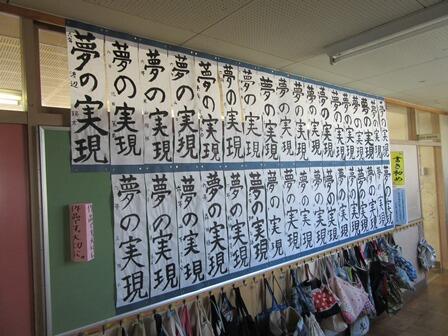 夢の実現
夢の実現
夢の実現
夢の実現
夢の実現
夢の実現
夢の実現
夢の実現
夢の実現
夢の実現
夢の実現
夢の実現
夢の実現
夢の実現
夢の実現
夢の実現
夢の実現
夢の実現
夢の実現
夢の実現
夢の実現
夢の実現
夢の実現
夢の実現
夢の実現
夢の実現
夢の実現
夢の実現
夢の実現
夢の実現
夢の実現
夢の実現
夢の実現
書き初め